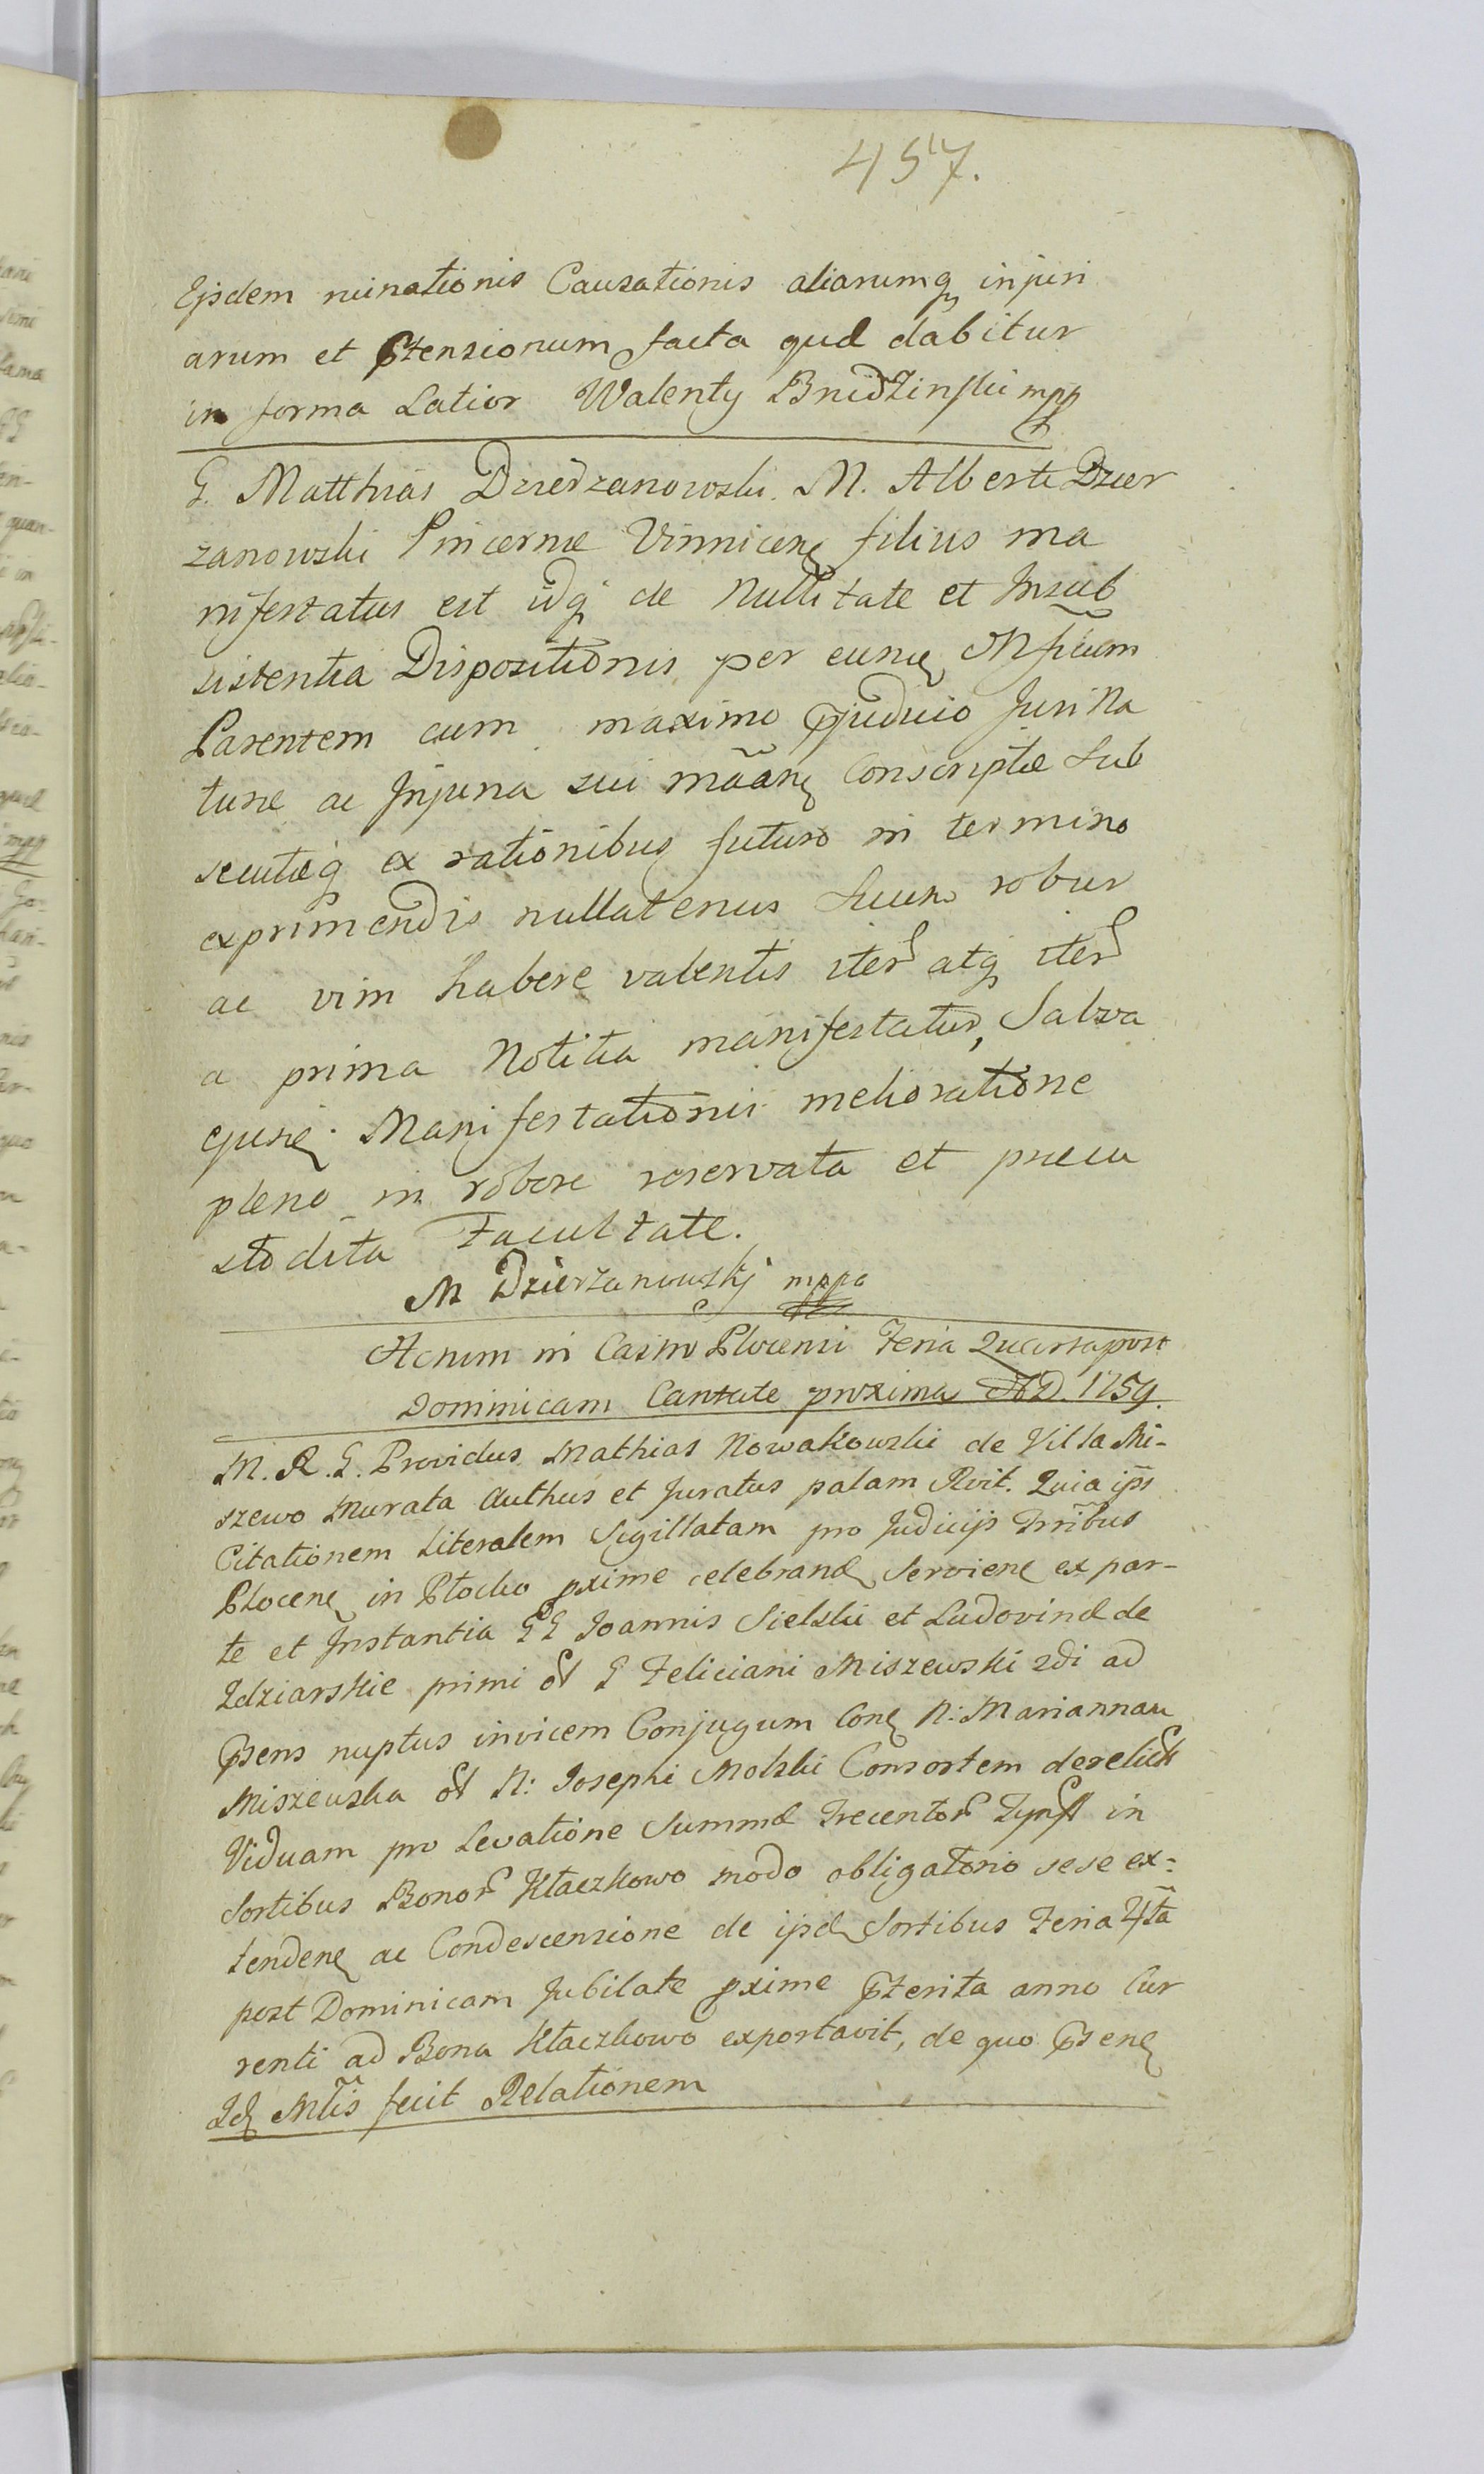 457.
Ejsdem ruinationis Causationis aliarumq injuri
arum et Ptensionum facta quæ dabitur
in forma Latior Walenty Brudzinski mpp
G. Matthias Dzierzanowski M. Alberti Dzier
zanowski Pincernæ Vinnicen filius ma
nifestatus est idq de Nullitate et Insub
sistentia Dispositionis per eund Mficum
Parentem cum maximo pjudicio Juri Na
turæ ac Injuria sui mãan Conscriptæ Sub
secutæq ex rationibus futuro in termino
exprimendis nullatenus Suum robur
ac vim habere valentis iter atq iter
a prima Notitia manifestatur, Salva
ejusd Manifestationis melioratione
pleno in robore reservata et præcu
stodita Facultate.
M Dzierzanowskj mppa
Actum in Castro Plocensi Feria Quarta post
Dominicam Cantate proxima AD. 1759.
M. R. G. Providus Mathias Nowakowski de Villa Mi-
szewo Murata Authus et Juratus palam Rvit. Quia ips
Citationem Literalem Sigillatam pro Judicijs Trribus
Plocen in Płocko pxime celebrand Servien ex par-
te et Instantia GG Joannis Sielski et Ludovinæ de
Zdziarskie primi ol G Feliciani Miszewski 2di ad
Psens nuptus invicem Conjugum Con N: Mariannam
Miszewska ol N: Josephi Molski Consortem derelict
Viduam pro Levatione Summæ Trecentor Tynf in
Sortibus Bonor Kłaczkowo modo obligatorio sese ex=
tenden ac Condescensione de ijsd Sortibus Feria 4ta
post Dominicam Jubilate pxime Pterita anno Cur
renti ad Bona Kłaczkowo exportavit, de quo Psen
Id Mlis fecit Relationem